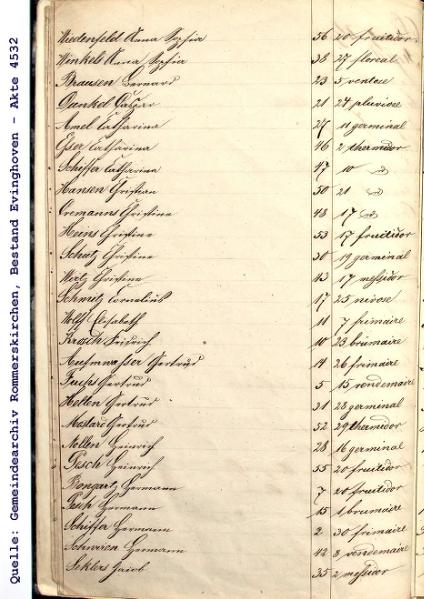 Quelle: Gemeindearchiv Rommerskirchen, Bestand Evinghoven - Akte 4532
Wiedenfeld Anna Sophia 56 20 fruitidor
Winkels Anna Sophia 38 27 floreal
Brausen Bernard 23 5 ventose
Dunkel Caspar 21 24 pluviose
Amel Catharina 27 11 germinal
Esser Catharina 46 2 thermidor
Schiffer Catharina 47 10
Hansen Christian 50 21
Cremanns Christine 48 17
Heins Christine 53 17 fruitidor
Schatz Christine 30 19 germinal
Wertz Christine 43 17 messidor
Schmitz Cornelius 17 25 nivose
Wolff Elisabeth 11 7 frimaire
Friedrich 10 23 brumaire
Gertrud 14 26 frimaire
Fuchs Gertrud 5 15 vendemaire
Hetten Gertrud 31 28 germinal
Gertrud 52 29 thermidor
Nollen Heinrich 28 16 germinal
Pesch Heinrich 55 20 fruitidor
Bongartz Hermann 7 20 fruitidor
Pesch Hermann 15 1 brumaire
Schiffer Hermann 2 30 frimaire
Hermann 42 8 vendemaire
Jacob 35 2 messidor